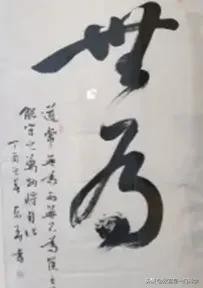 無為
道常無為而無不為侯王
能守之萬物將自化
丁酉 春 書